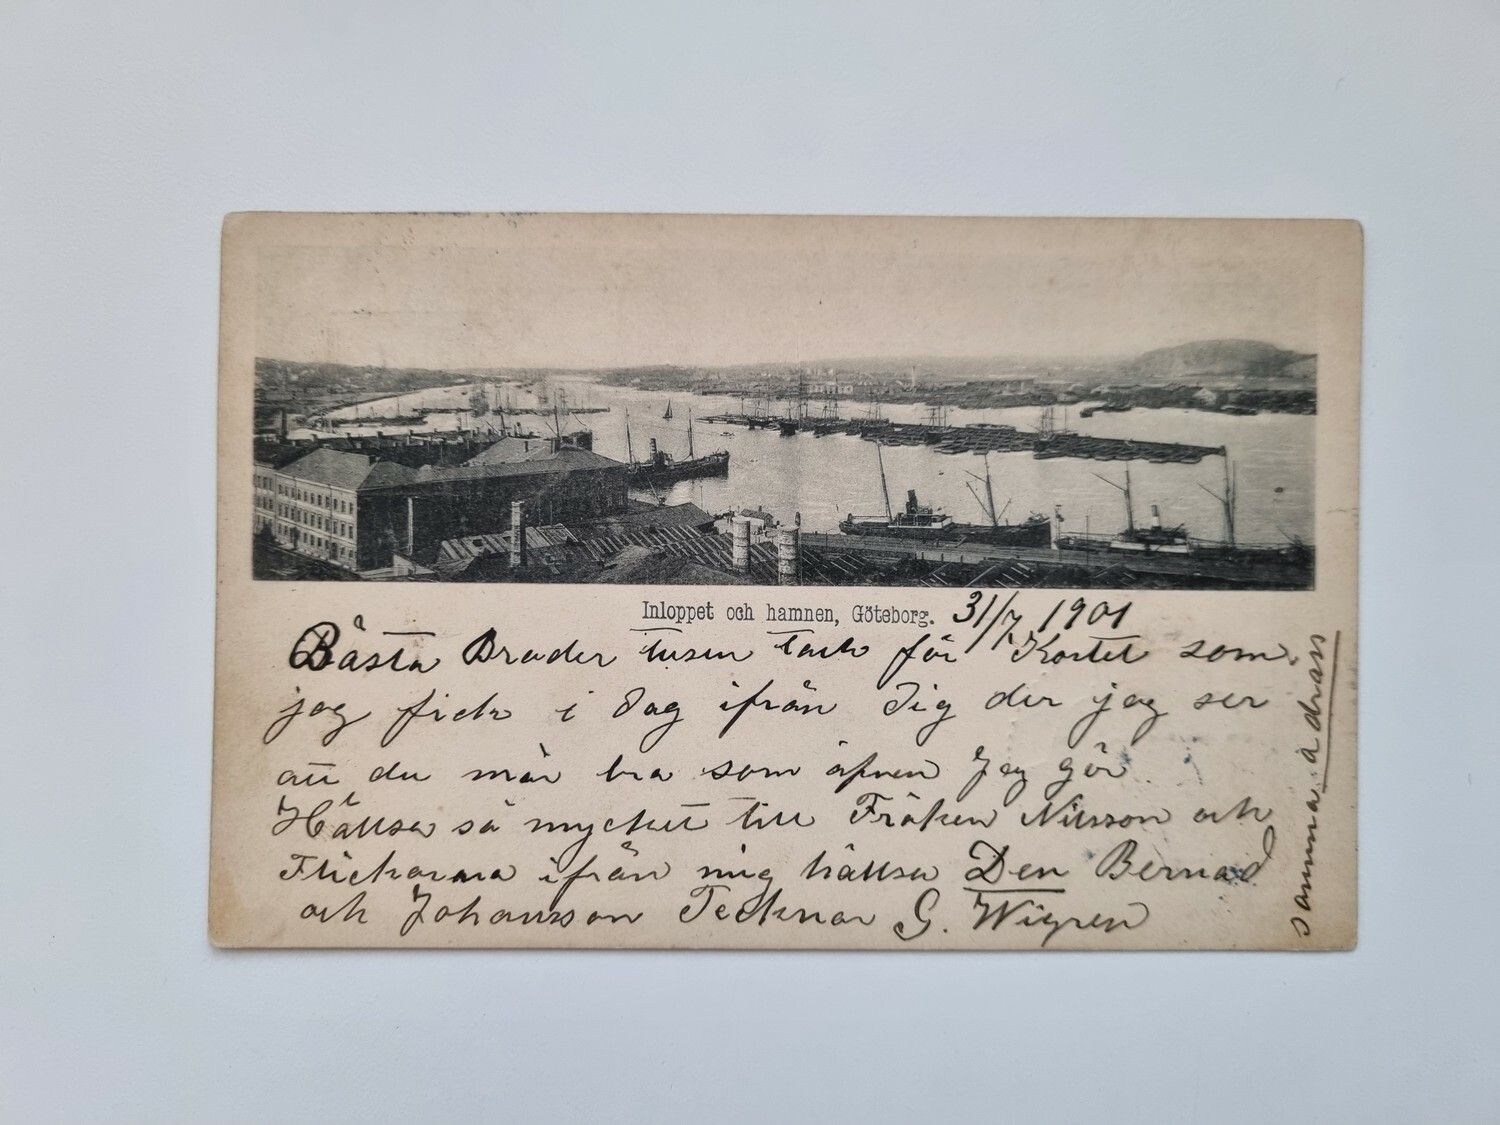 Inloppet och hamnen, Göteborg. 31/7 1901
Bästa Broder tusen tack för Kortet som
jag fick i dag ifrån Dig der jag ser
att du mår bra som äfven Jag gör
Hällsa så mycket till Fröken Nilsson och
Flickorna ifrån mig hällsa Den Bernad
och Johansson Tecknar G. Wigren
samma adrass